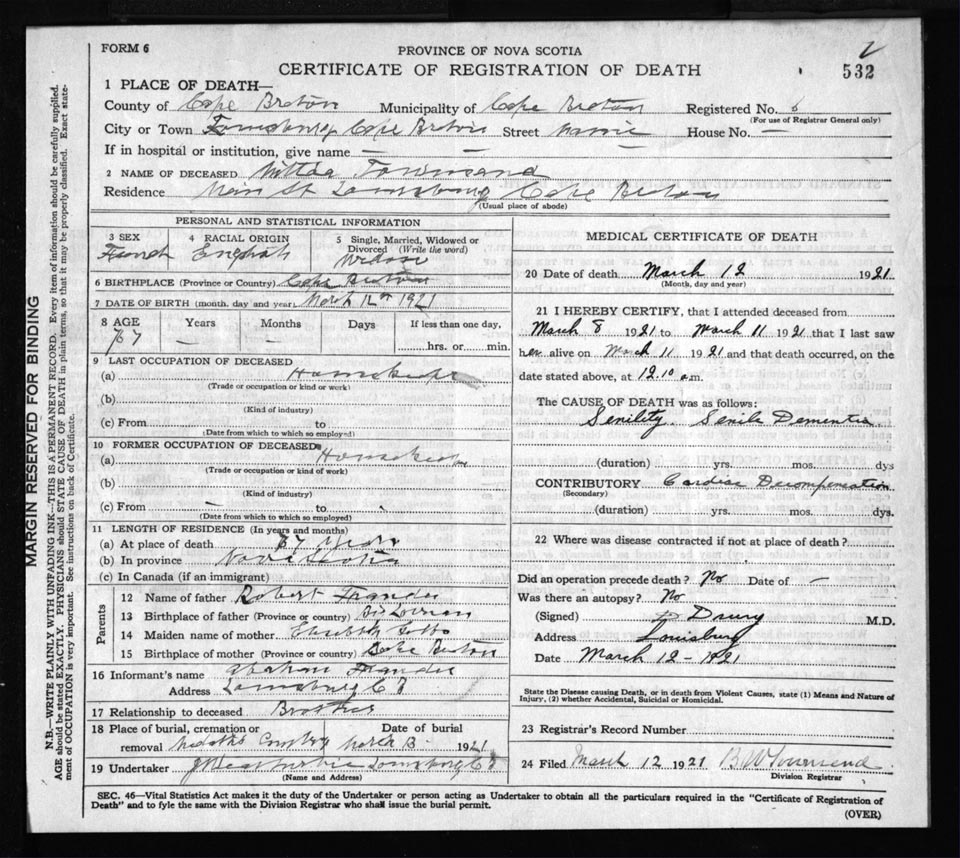 FORM 6
PROVINCE OF NOVA SCOTIA
CERTIFICATE OF REGISTRATION OF DEATH
532
1 PLACE OF DEATH—
County of Cape Breton Municipality of Cape Breton Registered No. 6
(For use of Registrar General only)
City or Town Louisburg Cape Breton Street House No. —
If in hospital or institution, give name — — —
2 NAME OF DECEASED Townsend
Residence Main St Louisburg Cape Breton
(Usual place of abode)
PERSONAL AND STATISTICAL INFORMATION
3 SEX
4 RACIAL ORIGIN
5 Single, Married, Widowed or Divorced (Write the word)
English
6 BIRTHPLACE (Province or Country) Cape Breton
7 DATE OF BIRTH (month, day and year) March 12th 1921
8 AGE Years Months Days If less than one day,
67 — — hrs. or min.
9 LAST OCCUPATION OF DECEASED
(a)
(Trade or occupation or kind or work)
(b)
(Kind of industry)
(c) From to
(Date from which to which so employed)
10 FORMER OCCUPATION OF DECEASED
(a)
(Trade or occupation or kind of work)
(b)
(Kind of industry)
(c) From — to
(Date from which to which so employed)
11 LENGTH OF RESIDENCE (In years and months)
(a) At place of death 67 years
(b) In province Nova Scotia
(c) In Canada (if an immigrant)
Parents
12 Name of father Robert
13 Birthplace of father (Province or country)
14 Maiden name of mother Elizabeth
15 Birthplace of mother (Province or country) Cape Breton
16 Informant's name
Address Louisburg C B
17 Relationship to deceased Brother
18 Place of burial, cremation or removal Date of burial
March 13 1921
19 Undertaker Louisburg C B
(Name and Address)
MEDICAL CERTIFICATE OF DEATH
20 Date of death March 12 1921
(Month, day and year)
21 I HEREBY CERTIFY, that I attended deceased from
March 8 1921 to March 11 1921 that I last saw
her alive on March 11 1921 and that death occurred, on the
date stated above, at 12.10 a.m.
The CAUSE OF DEATH was as follows:
Senility Senile Dementia
(duration) yrs. mos. dys
CONTRIBUTORY Cardiac Decompensation
(Secondary)
(duration) yrs. mos. dys.
22 Where was disease contracted if not at place of death?
Did an operation precede death? No Date of —
Was there an autopsy? No
(Signed) M.D.
Address Louisburg
Date March 12 - 1921
State the Disease causing Death, or in death from Violent Causes, state (1) Means and Nature of
Injury, (2) whether Accidental, Suicidal or Homicidal.
23 Registrar's Record Number
24 Filed March 12 1921 B W Townsend
Division Registrar
SEC. 46—Vital Statistics Act makes it the duty of the Undertaker or person acting as Undertaker to obtain all the particulars required in the "Certificate of Registration of
Death" and to fyle the same with the Division Registrar who shall issue the burial permit.
(OVER)
MARGIN RESERVED FOR BINDING
N.B.—WRITE PLAINLY WITH UNFADING INK—THIS IS A PERMANENT RECORD. Every item of information should be carefully supplied.
AGE should be stated EXACTLY. PHYSICIANS should STATE CAUSE OF DEATH in plain terms, so that it may be properly classified. Exact state-
ment of OCCUPATION is very important. See instructions on back of Certificate.